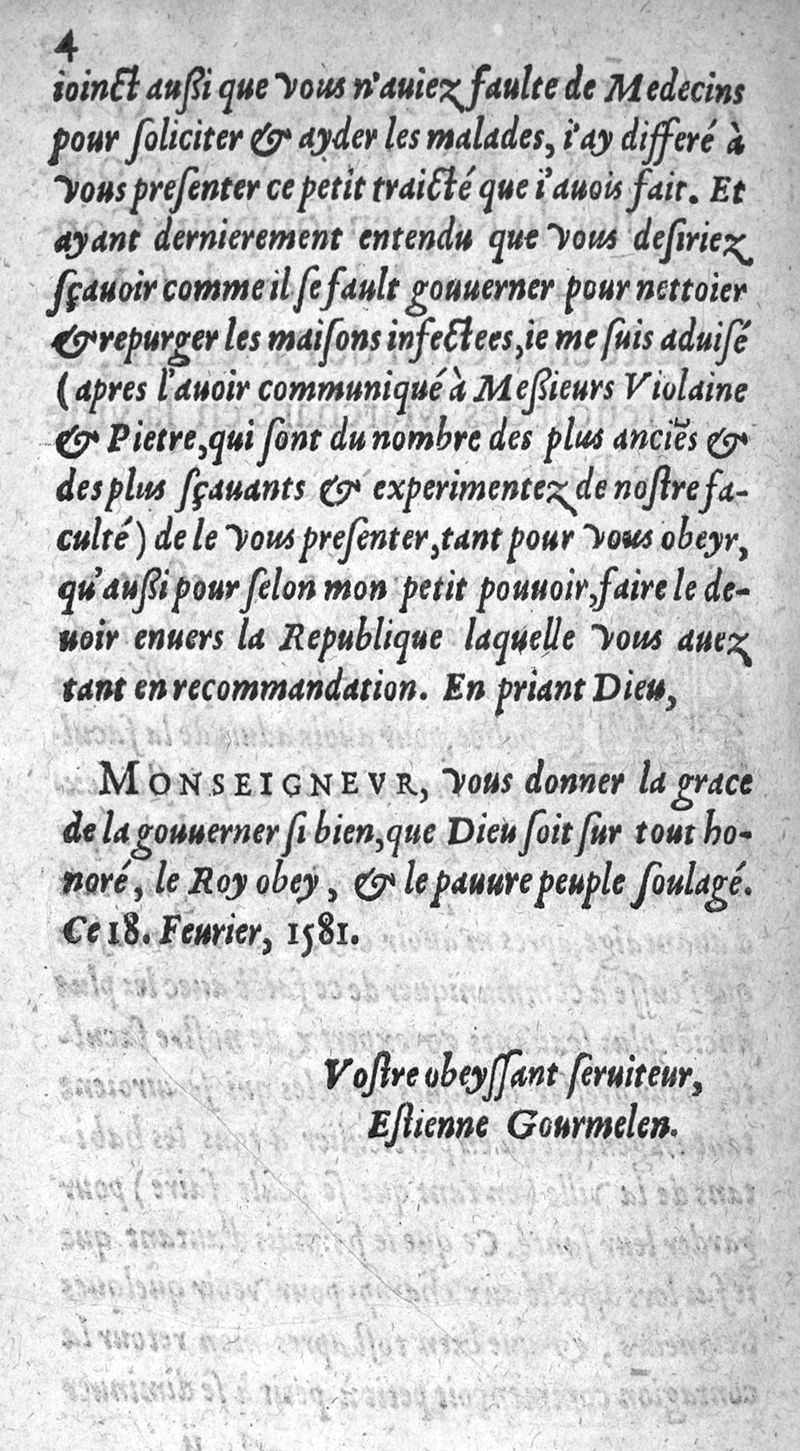 4
ioinct außi que vous n'auiez faulte de Medecins
pour ſoliciter & ayder les malades, i'ay differé à
vous preſenter ce petit traicté que i'auois fait. Et
ayant dernierement entendu que vous deſiriez
ſçauoir comme il ſe fault gouuerner pour nettoier
& repurger les maiſons infectees, ie me ſuis aduiſé
(apres l'auoir communiqué à Meßieurs Violaine
& Pietre, qui ſont du nombre des plus anciẽs &
des plus ſçauants & experimentez de noſtre fa-
culté) de le vous preſenter, tant pour vous obeyr,
qu'außi pour ſelon mon petit pouuoir, faire le de-
uoir enuers la Republique laquelle vous auez
tant en recommandation. En priant Dieu,
MONSEIGNEVR, vous donner la grace
de la gouuerner ſi bien, que Dieu ſoit ſur tout ho-
noré, le Roy obey, & le pauure peuple ſoulagé.
Ce 18. Feurier, 1581.
Voſtre obeyſſant ſeruiteur,
Eſtienne Gourmelen.